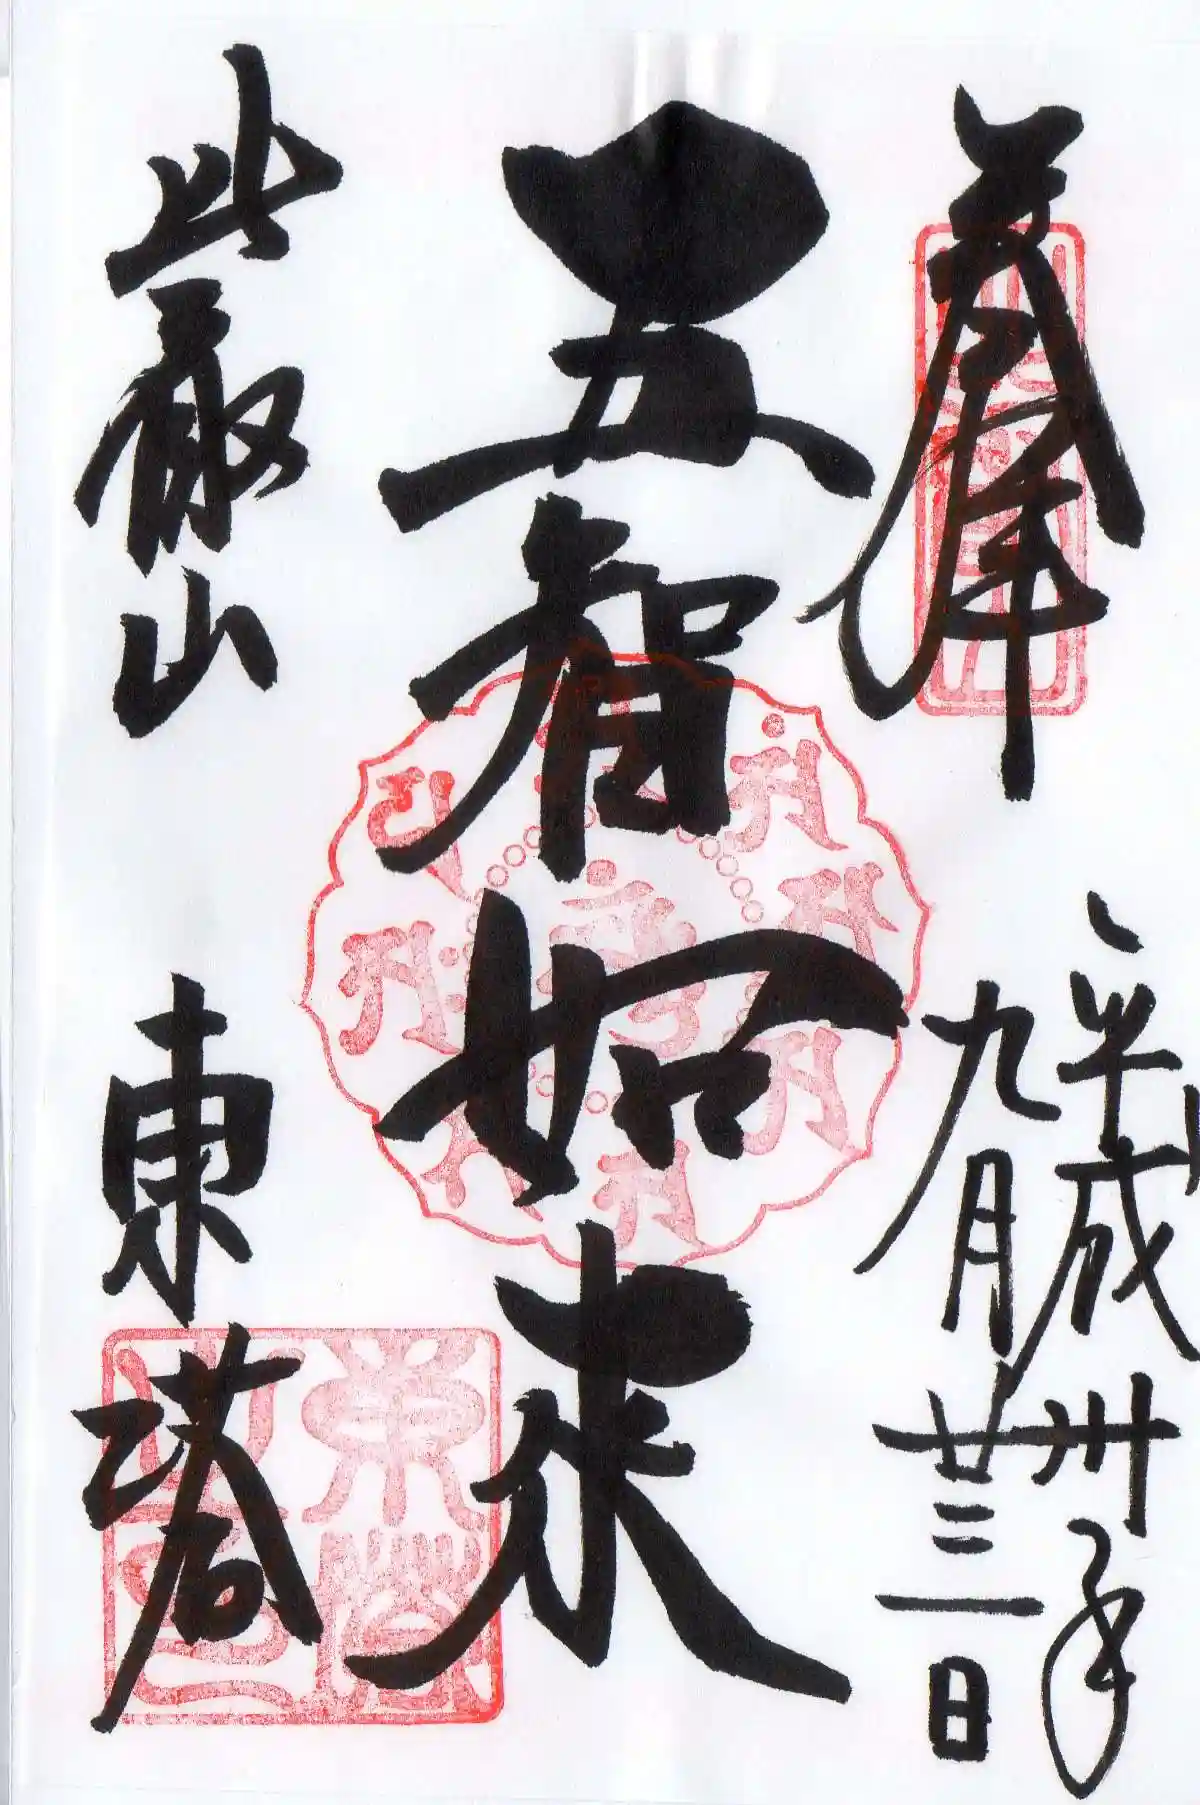 奉拝
平成卅年
九月廿三日
五智如来
比叡山 東塔
東塔
之印